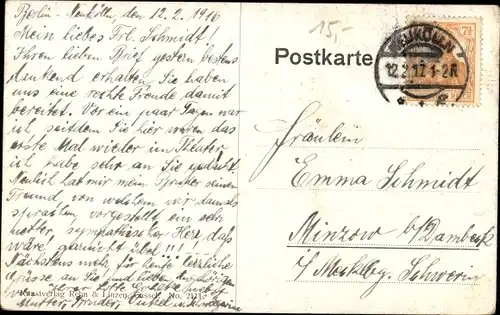 Berlin-Neukölln, den 12.2.1916
Mein liebes Frl. Schmidt!
Ihren lieben Brief gestern bestens
dankend erhalten, Sie haben
uns eine rechte Freude damit
bereitet. Vor ein paar Tagen war
ich seitdem Sie hier waren das
erste Mal wieder im Theater,
ich habe sehr an Sie gedacht.
Neulich hat mir mein Bruder seinen
Freund, von welchem wir damals
sprachen, vorgestellt ein sehr
netter, sympathischer Herr, das
wäre garnicht übel!!!!
Nächstens mehr, für heute herzliche
Grüsse an Sie und
Ihre Lotte nebst
Mutter, Bruder, Onkel u.
Kunstverlag Rehn & Linzen, Cassel. No. 2111.
15,-
Postkarte
NEUKÖLLN
12.2.17.1-2N
7½
Fräulein
Emma Schmidt
Minzow b/ Dambeck
i/ Meckldbg. Schwerin